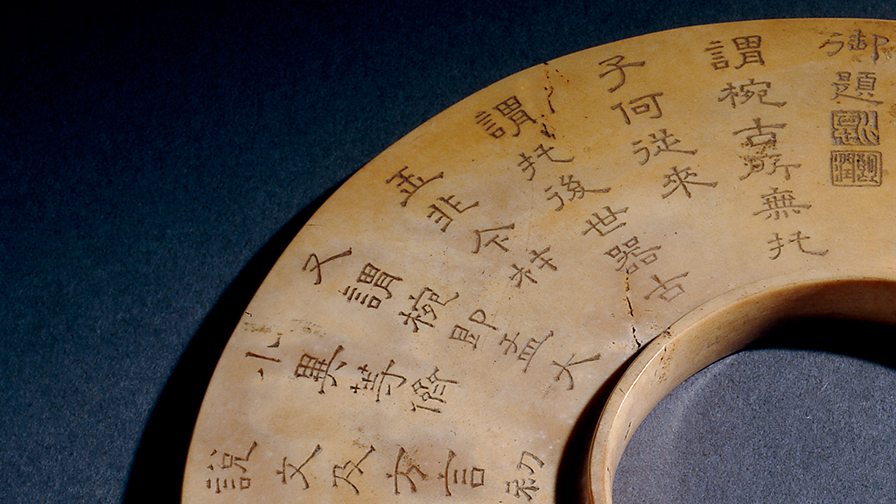 御題
比德
朗潤
謂椀古所無托
子何從來
謂托後世器古
玉非今材
又謂椀即盂大
小異等儕
說文及方言